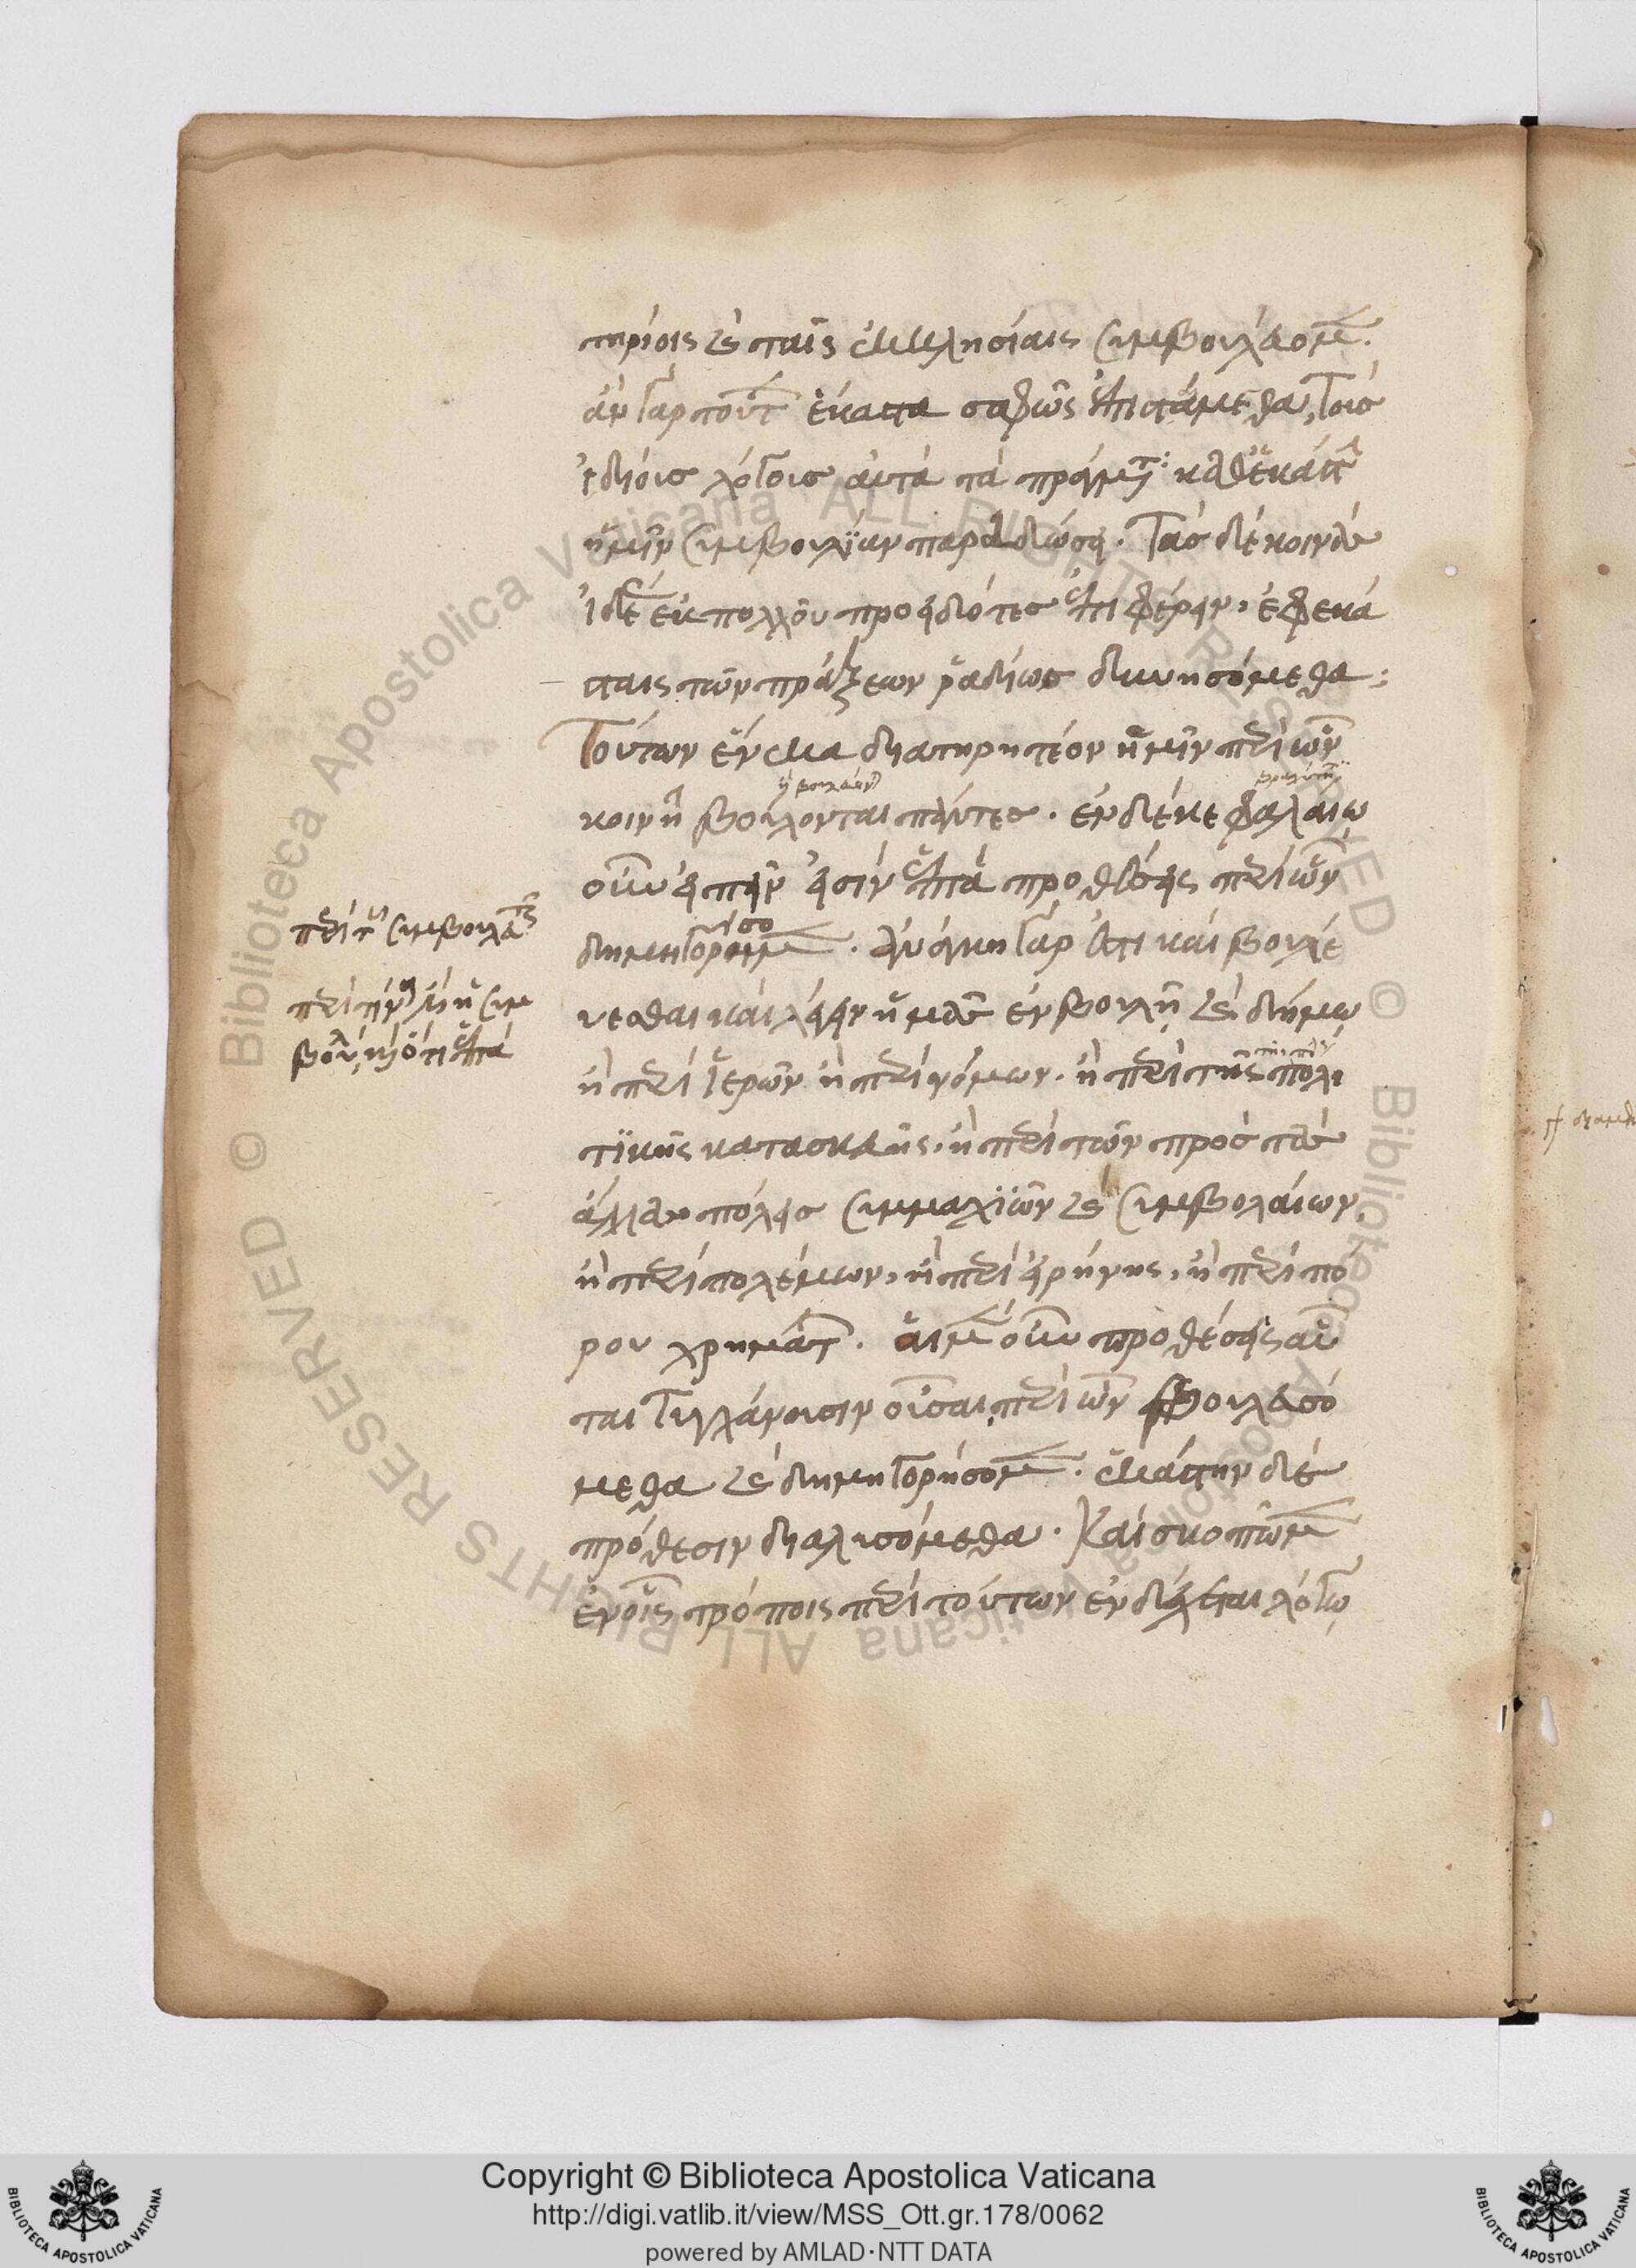 τηρίοις καὶ ταῖς ἐκκλησίαις συμβουλεύομεν.
ἂν γὰρ τούτων ἕκαστα σαφῶς ἐπιστάμεθα, τοὺς
ἰδίους λόγους αὐτὰ τὰ πράγματα καθ' ἑκάστην
ἡμῖν συμβουλίαν παραδώσει. τὰς δὲ κοινὰς
ἰδέας ἐκ πολλοῦ προειδότες ἐπιφέρειν, ἐφ' ἑκά
σταις τῶν πράξεων ῥαδίως δυνησόμεθα:
Τούτων ἕνεκα διαιρετέον ἡμῖν περὶ ὧν
κοινῇ βούλονται πάντες. ἐν δὲ κεφαλαίῳ
οὖν εἰπεῖν εἰσὶν ἑπτὰ προθέσεις περὶ ὧν
δημηγοροῦμεν. ἀνάγκη γάρ ἐστι καὶ βουλεύ
εσθαι καὶ λέγειν ἡμᾶς ἐν βουλῇ καὶ δήμῳ
ἢ περὶ ἱερῶν ἢ περὶ νόμων. ἢ περὶ τῆς πολι
τικῆς κατασκευῆς. ἢ περὶ τῶν πρὸς τὰς
ἄλλας πόλεις συμμαχιῶν καὶ συμβολαίων,
ἢ περὶ πολέμων, ἢ περὶ εἰρήνης, ἢ περὶ πό
ρου χρημάτων. αἱ μὲν οὖν προθέσεις αὗ
ται τυγχάνουσιν οὖσαι, περὶ ὧν βουλευσό
μεθα καὶ δημηγορήσομεν. ἑκάστην δὲ
πρόθεσιν διελώμεθα. καὶ σκοπῶμεν
ἐν οἷς τρόποις περὶ τούτων ἐνδέχεται λόγῳ
Copyright © Biblioteca Apostolica Vaticana
http://digi.vatlib.it/view/MSS_Ott.gr.178/0062
powered by AMLAD·NTT DATA